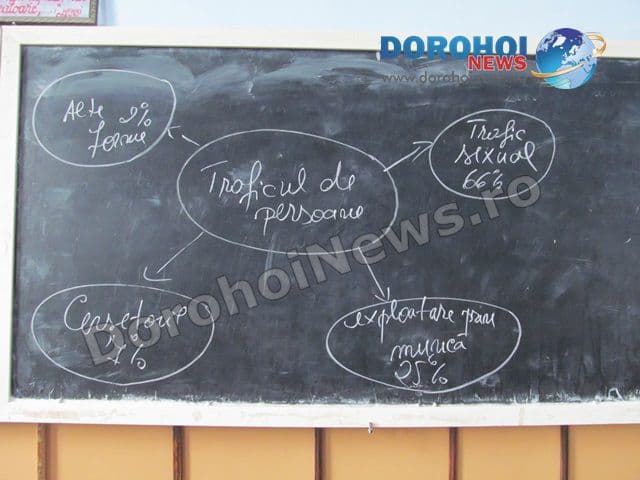 DOROHOI
NEWS
www.doroho
Alte 2%
forme
Traficul de
persoane
Trafic
sexual
66%
Cerșetorie
7%
exploatare prin
muncă
25%
DorohoiNews.ro